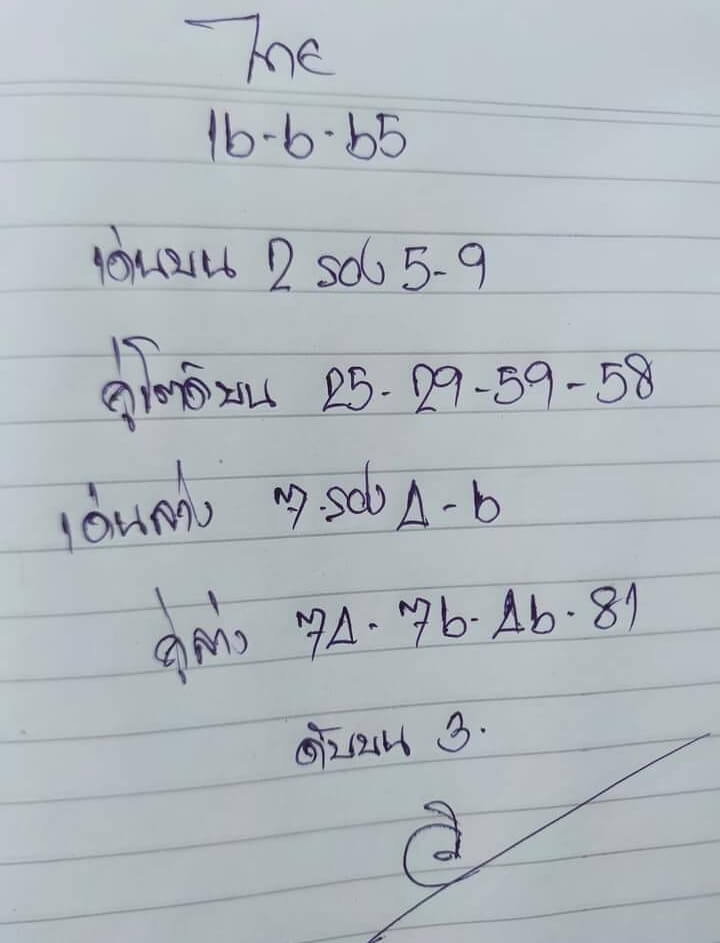 ไทย
16-6-65
เด่นบน 2 รอง 5-9
คู่โตดบน 25-29-59-58
เด่นล่าง 7-รอง 4-6
คู่ล่าง 74-76-46-81
ดับบน 3.